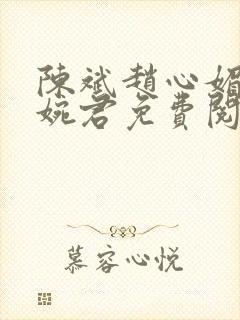 陳斌趙心媚
婉君免費閱
慕容心悦